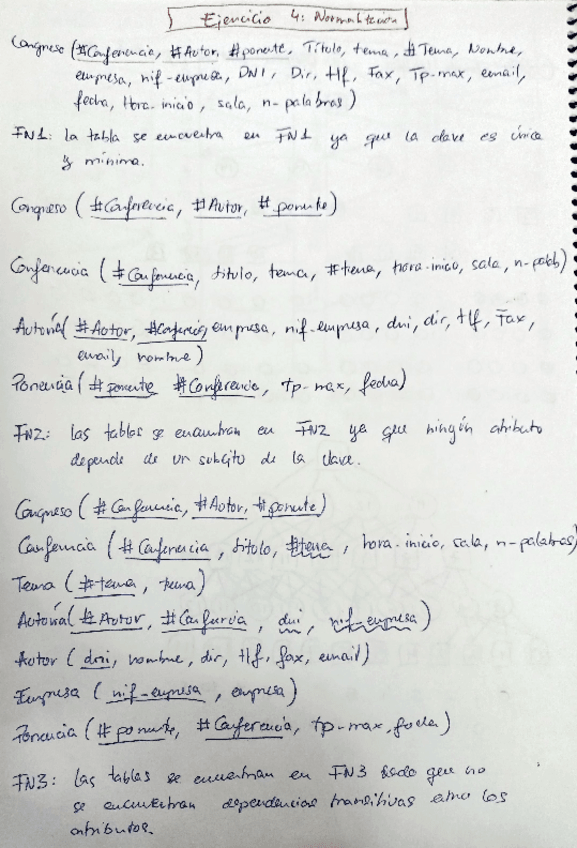 Ejercicio 4: Normalización
Congreso (#Conferencia, #Autor, #ponente, Título, tema, #Tema, Nombre,
empresa, nif-empresa, DNI, Dir, tlf, Fax, Tp-max, email,
fecha, Hora-inicio, sala, n-palabras)
FN1: la tabla se encuentra en FN1 ya que la clave es única
y mínima.
Congreso (#Conferencia, #Autor, #ponente)
Conferencia (#Conferencia, titulo, tema, #tema, hora-inicio, sala, n-palab)
Autoría (#Autor, #Conferencia, empresa, nif-empresa, dni, dir, tlf, Fax,
email, nombre)
Ponencia (#ponente #Conferencia, tp-max, fecha)
FN2: las tablas se encuentran en FN2 ya que ningún atributo
depende de un subcjto de la clave.
Congreso (#Conferencia, #Autor, #ponente)
Conferencia (#Conferencia, titulo, #tema, hora-inicio, sala, n-palabras)
Tema (#tema, tema)
Autoría (#Autor, #Conferencia, dni, nif-empresa)
Autor (dni, nombre, dir, tlf, fax, email)
Empresa (nif-empresa, empresa)
Ponencia (#ponente, #Conferencia, tp-max, fecha)
FN3: Las tablas se encuentran en FN3 dado que no
se encuentran dependencias transitivas entre los
atributos.